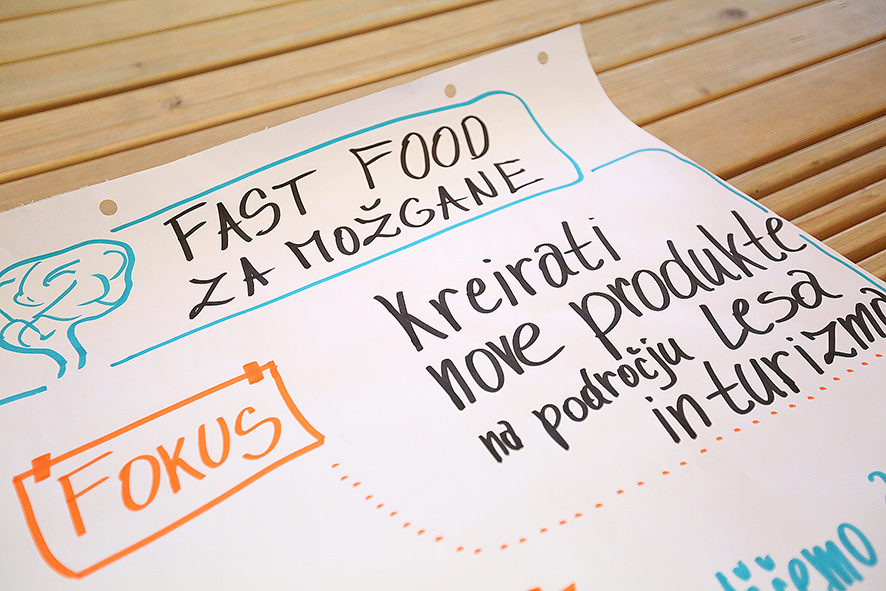 FAST FOOD
ZA MOŽGANE
Kreirati
nove produkte
na področju lesa
in turizma
FOKUS